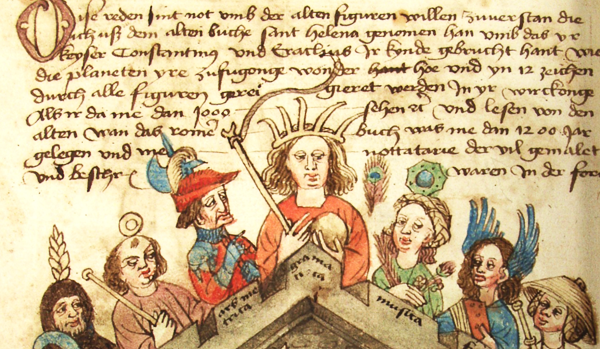 Dise reden sint not umb der alten figuren willen zuverstan die
ich uß dem alten buche sant helena genomen han umb das yr
keyser Constantinus und Eraclius ir kynde gebrucht hant wie
die planeten yre zufugonge wonder hant hoe und yn 12 zeichen
durch alle figuren gerei gieret werden In yr wirckonge
Als ir da me dan 1000 sehen und lesen von den
alten wan das rome buch was me dan 1200 Jar
gelegen und me nottatarie der vil gemalet
und beschr waren in der
ars me
trica
grama
tica
musica